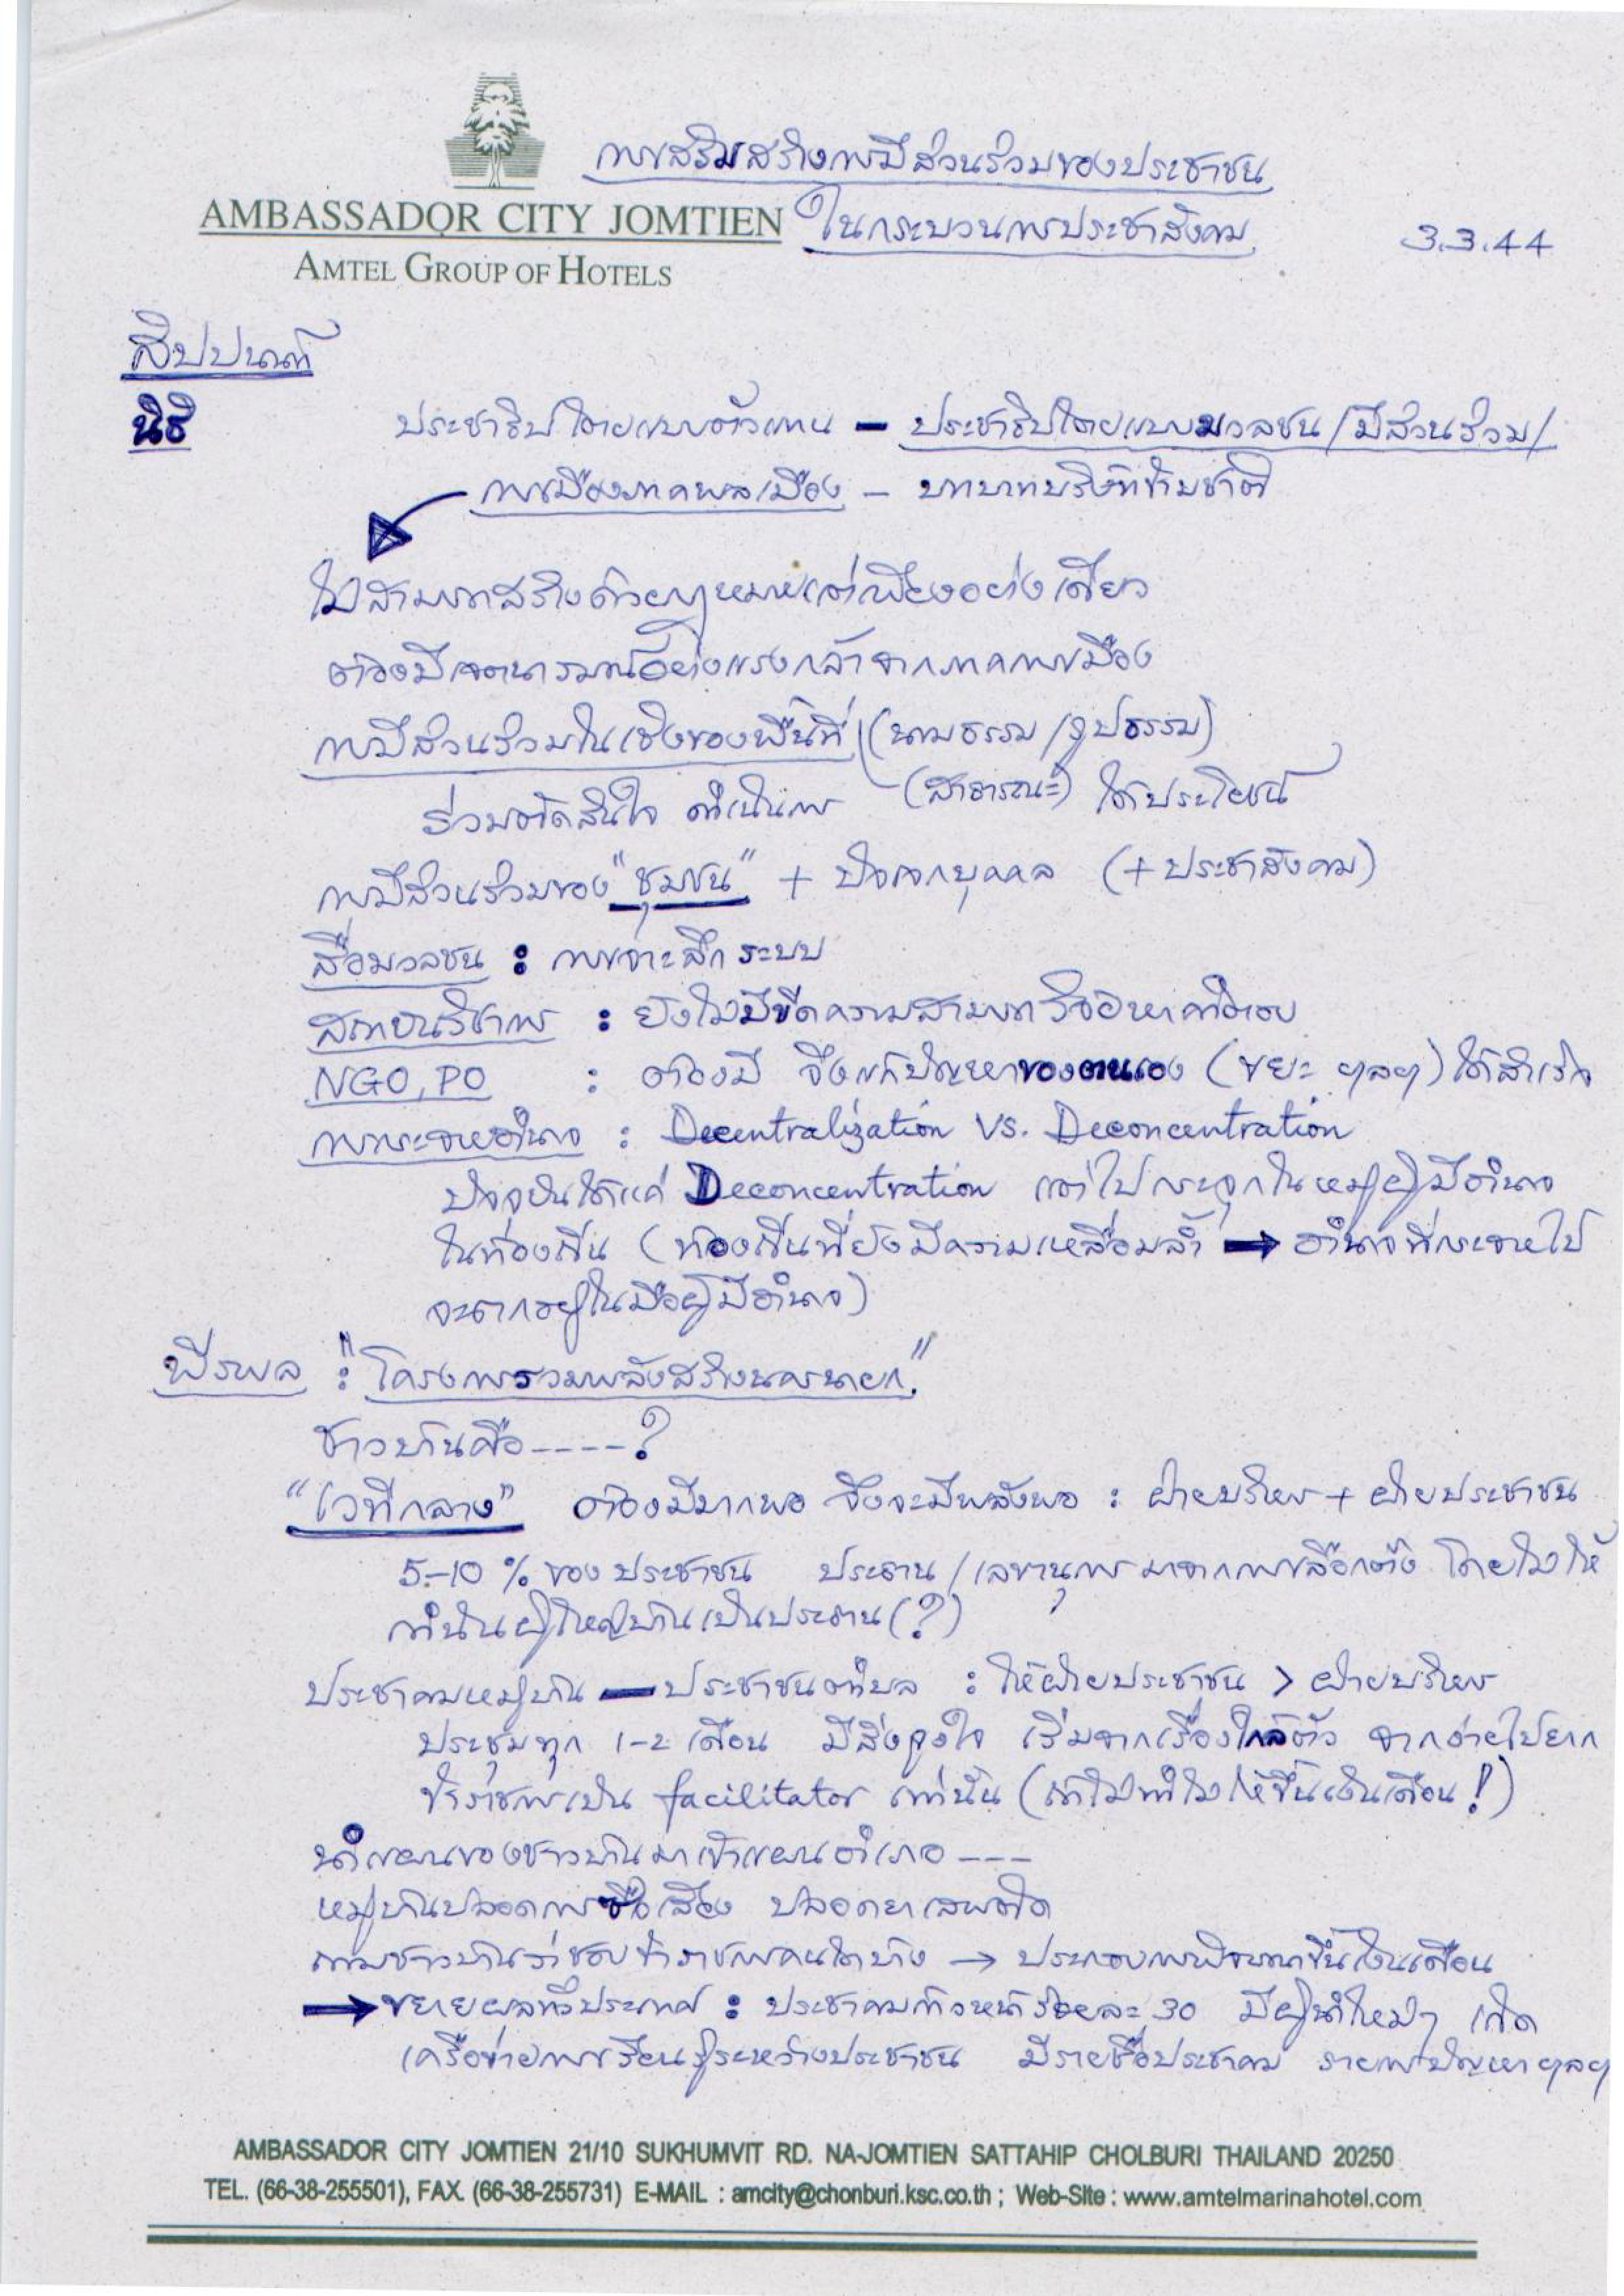 การเสริมสร้างการมีส่วนร่วมของประชาชน
AMBASSADOR CITY JOMTIEN
ในกระบวนการประชาสังคม
3.3.44
AMTEL GROUP OF HOTELS
สิปปนนท์
นิธิ
ประชาธิปไตยแบบตัวแทน – ประชาธิปไตยแบบมวลชน/มีส่วนร่วม/
การเมืองภาคพลเมือง – บทบาทบริษัทข้ามชาติ
ไม่สามารถสร้างด้วยกฎหมายแต่เพียงอย่างเดียว
ต้องมีเจตนารมณ์อย่างแรงกล้าจากภาคการเมือง
การมีส่วนร่วมในเชิงของพื้นที่ (นามธรรม/รูปธรรม)
ร่วมตัดสินใจ ดำเนินการ (สาธารณะ) ได้ประโยชน์
การมีส่วนร่วมของ "ชุมชน" + ปัจเจกบุคคล (+ ประชาสังคม)
สื่อมวลชน : การเจาะลึก ระบบ
สถาบันวิชาการ : ยังไม่มีขีดความสามารถวิจัยหาคำตอบ
NGO, PO : ต้องมี จึงแก้ปัญหาของตนเอง (ขยะ ฯลฯ) ได้สำเร็จ
การกระจายอำนาจ : Decentralization VS. Deconcentration
ปัจจุบันได้แค่ Deconcentration แต่ไปกระจุกในหมู่ผู้มีอำนาจ
ในท้องถิ่น (ท้องถิ่นที่ยังมีความเหลื่อมล้ำ → อำนาจที่กระจายไป
จะตกอยู่ในมือผู้มีอำนาจ)
พีรพล : "โครงการรวมพลังสร้างนครนายก"
ชาวบ้านคือ ----?
"เวทีกลาง" ต้องมีมากพอ จึงจะมีพลังพอ : ฝ่ายบริหาร + ฝ่ายประชาชน
5-10 % ของประชาชน ประธาน/เลขานุการ มาจากการเลือกตั้ง โดยไม่ให้
กำนันผู้ใหญ่บ้านเป็นประธาน (?)
ประชาคมหมู่บ้าน – ประชาชนตำบล : ให้ฝ่ายประชาชน > ฝ่ายบริหาร
ประชุมทุก 1-2 เดือน มีสิ่งจูงใจ เริ่มจากเรื่องใกล้ตัว จากง่ายไปยาก
ข้าราชการเป็น facilitator เท่านั้น (ถ้าไม่ทำไม่ให้ขึ้นเงินเดือน!)
นำแผนของชาวบ้านมาเข้าแผนอำเภอ ---
หมู่บ้านปลอดการซื้อเสียง ปลอดยาเสพติด
ถามชาวบ้านว่าชอบข้าราชการคนใดบ้าง → ประกอบการพิจารณาขึ้นเงินเดือน
→ ขยายผลทั่วประเทศ : ประชาคมก้าวหน้าร้อยละ 30 มีผู้นำใหม่ๆ เกิด
เครือข่ายการเรียนรู้ระหว่างประชาชน มีรายชื่อประชาคม รายการปัญหา ฯลฯ
AMBASSADOR CITY JOMTIEN 21/10 SUKHUMVIT RD. NA-JOMTIEN SATTAHIP CHOLBURI THAILAND 20250
TEL. (66-38-255501), FAX. (66-38-255731) E-MAIL : amcity@chonburi.ksc.co.th ; Web-Site : www.amtelmarinahotel.com